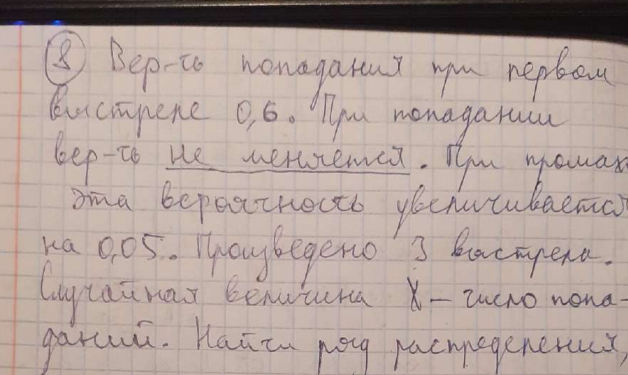 8 Вер-ть попадания при первом
выстреле 0,6. При попадании
вер-ть не меняется. При промах
эта вероятность увеличивается
на 0,05. Произведено 3 выстрела.
Случайная величина X – число попа-
даний. Найти ряд распределения,